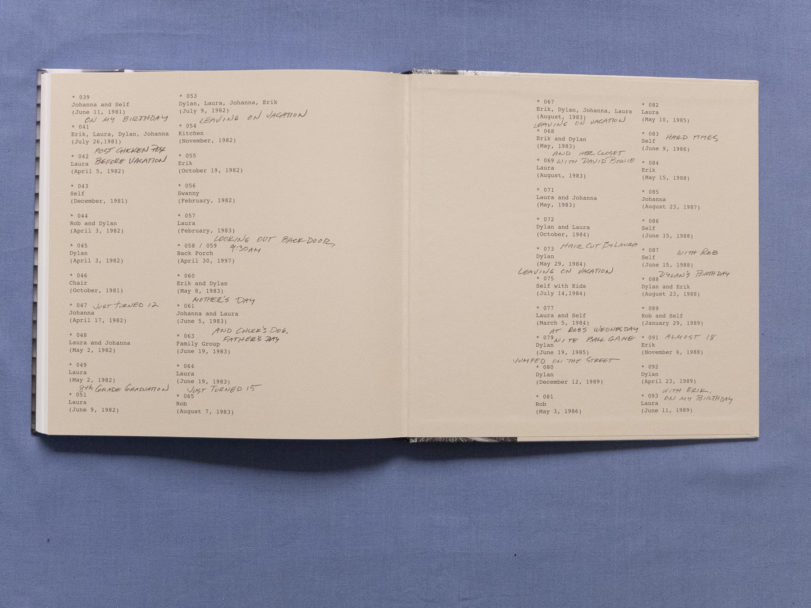 * 039
Johanna and Self
(June 11, 1981)
ON MY BIRTHDAY
* 041
Erik, Laura, Dylan, Johanna
(July 26,1981)
POST CHICKEN POX
* 042
Laura BEFORE VACATION
(April 5, 1982)
* 043
Self
(December, 1981)
* 044
Rob and Dylan
(April 3, 1982)
* 045
Dylan
(April 3, 1982)
* 046
Chair
(October, 1981)
* 047 JUST TURNED 12
Johanna
(April 17, 1982)
* 048
Laura and Johanna
(May 2, 1982)
* 049
Laura
(May 2, 1982)
8TH GRADE GRADUATION
* 051
Laura
(June 9, 1982)
* 053
Dylan, Laura, Johanna, Erik
(July 9, 1982)
LEAVING ON VACATION
* 054
Kitchen
(November, 1982)
* 055
Erik
(October 19, 1982)
* 056
Swanzy
(February, 1982)
* 057
Laura
(February, 1983)
LOOKING OUT BACK DOOR,
* 058 / 059 9:30AM
Back Porch
(April 30, 1997)
* 060
Erik and Dylan
(May 8, 1983)
MOTHER'S DAY
* 061
Johanna and Laura
(June 5, 1983)
AND DOG,
* 063 FATHER'S DAY
Family Group
(June 19, 1983)
* 064
Laura
(June 19, 1983)
JUST TURNED 15
* 065
Rob
(August 7, 1983)
* 067
Erik, Dylan, Johanna, Laura
(August, 1983)
LEAVING ON VACATION
* 068
Erik and Dylan
(May, 1983)
AND HER CLOSET
* 069 WITH DAVID BOWIE
Laura
(August, 1983)
* 071
Laura and Johanna
(May, 1983)
* 072
Dylan and Laura
(October, 1984)
* 073 HAIR CUT BY LAURA
Dylan
(May 29, 1984)
LEAVING ON VACATION
* 075
Self with Kids
(July 14,1984)
* 077
Laura and Self
(March 5, 1984)
AT ROB'S WEDNESDAY
* 079 NITE BALL GAME
Dylan
(June 19, 1985)
JUMPED ON THE STREET
* 080
Dylan
(December 12, 1989)
* 081
Rob
(May 3, 1986)
* 082
Laura
(May 10, 1985)
* 083 HARD TIMES
Self
(June 9, 1986)
* 084
Erik
(May 15, 1988)
* 085
Johanna
(August 23, 1987)
* 086
Self
(June 15, 1988)
* 087 WITH ROB
Self
(June 15, 1988)
DYLAN'S BIRTHDAY
* 088
Dylan and Erik
(August 23, 1988)
* 089
Rob and Self
(January 29, 1989)
* 091 ALMOST 18
Erik
(November 6, 1988)
* 092
Dylan
(April 23, 1989)
WITH ERIK,
* 093 ON MY BIRTHDAY
Laura
(June 11, 1989)